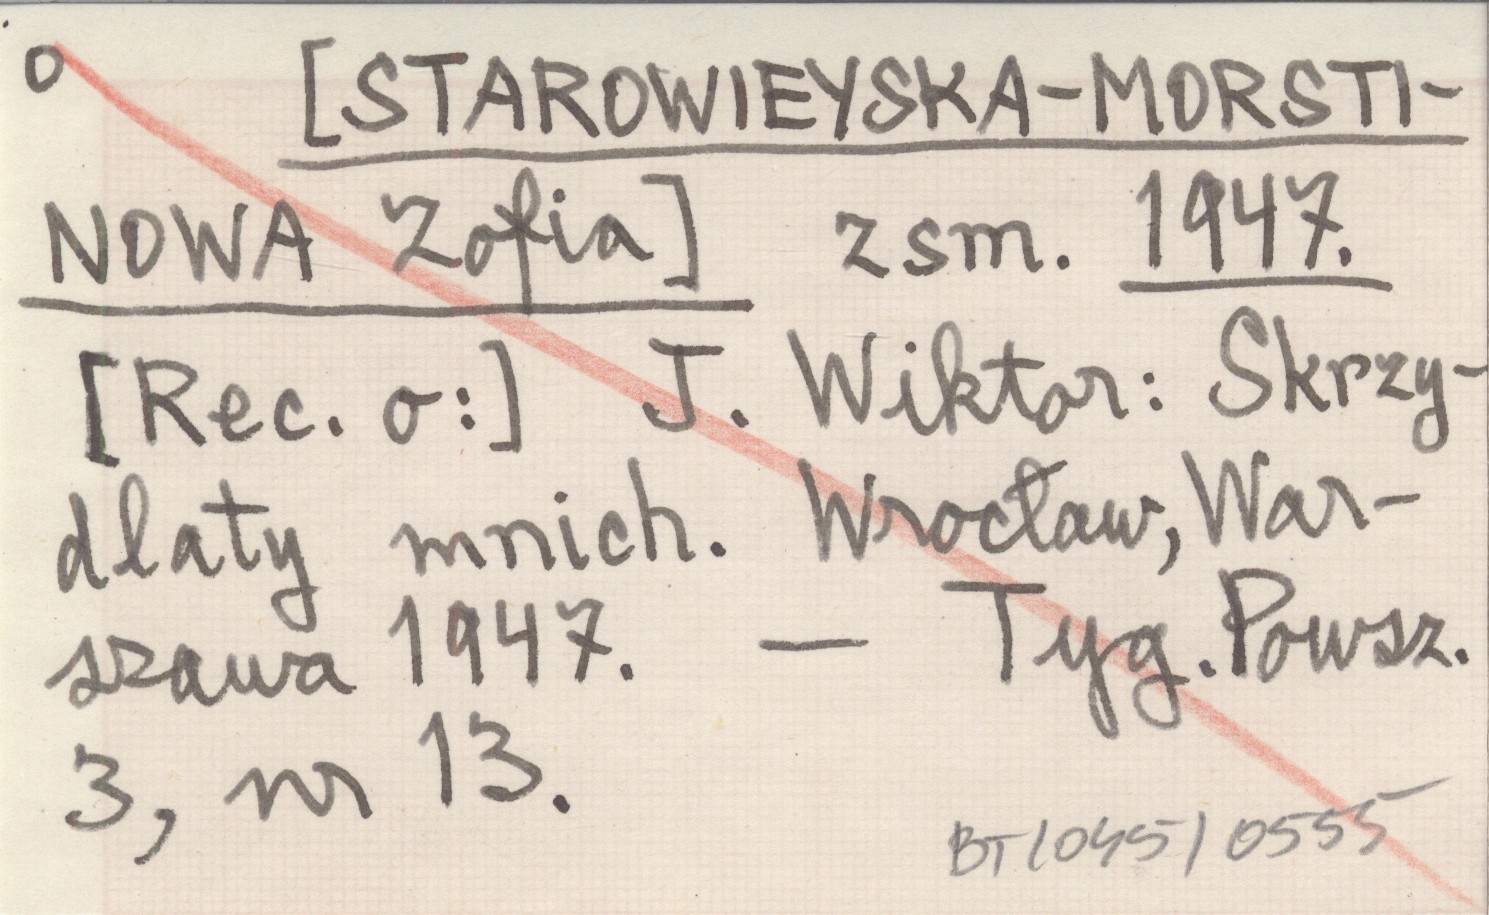 o [STAROWIEYSKA-MORSTI-
NOWA Zofia] zsm. 1947.
[Rec. o:] J. Wiktor: Skrzy-
dlaty mnich. Wrocław, War-
szawa 1947. — Tyg. Powsz.
3, nr 13.
BT/045/0555